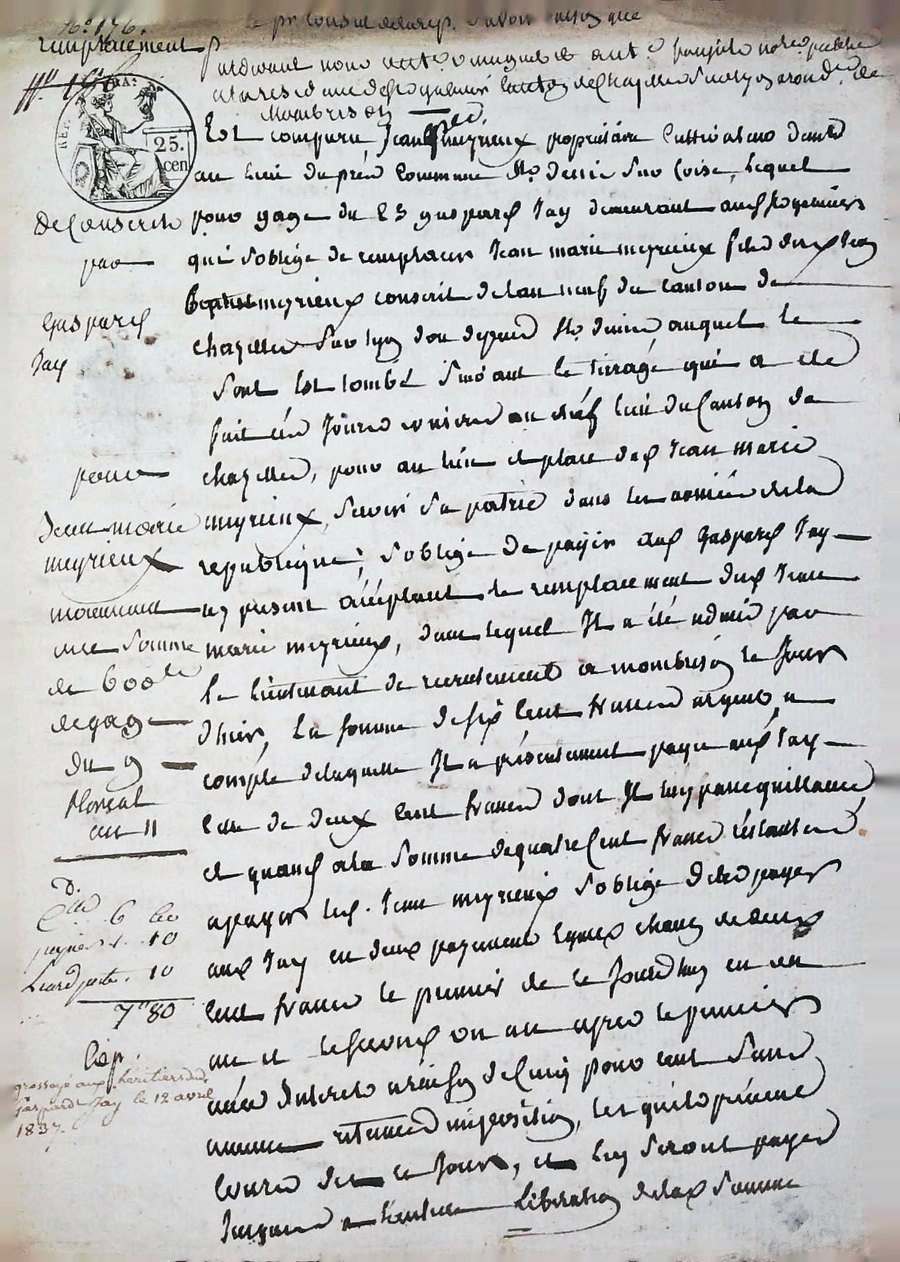 N.° 176.
remplacement
le p.r Consul
pardevant nous
notre publics
canton de Chazelles Sur Lyon arond.t de
Montbrison
REP. FRA.
25.
cen
Est comparu Jean meyrieux propriétaire Cultivateur dem.t
au lieu du pré Commune St. denis Sur Coise, lequel
pour gage du 23 gaspard Jay demeurant
qui S'oblige de remplacer Jean marie meyrieux fils dud. Jean
meyrieux conscrit de l'an neuf du canton de
chazelles Sur Lyon St. denis auquel le
Sort Est tombé Suivant le tirage qui a été
fait ces Jours au chef lieu du Canton de
chazelles, pour au lieu et place dud. Jean marie
meyrieux, Servir Sa patrie dans les armées de la
republique; S'oblige de payer aud. Gaspard Jay
icy présent acceptant le remplacement dud. Jean
marie meyrieux, dans lequel Il a été admis par
le lieutenant de recrutement a montbrison le Jour
d'hier, La somme de six Cent francs argent, a
compte de laquelle Il a présentement payé aud. Jay
Celle de deux Cent francs dont Il luy passe quittance
et quand a la Somme de quatre Cent francs restante
a payer led. Jean meyrieux S'oblige de les payer
aud. Jay en deux payements Egaux chacun de deux
Cent francs le premier de ce Jourd'huy en un
an et le second un an apres le premier
avec Interets a raison de Cinq pour cent Sans
aucune retenue d'imposition, lesquels
Cours des ce Jour, et luy Seront payés
Jusques a l'entiere Libération de lad. Somme
de Conscrits
par
Gaspard
Jay
pour
Jean marie
meyrieux
moiennant
une Somme
de 600
de gage
du 9
floreal
an 11
6 60
10
10
7 80
Exp.
grossoyé aux héritiers de
gaspard Jay le 12 avril
1837.